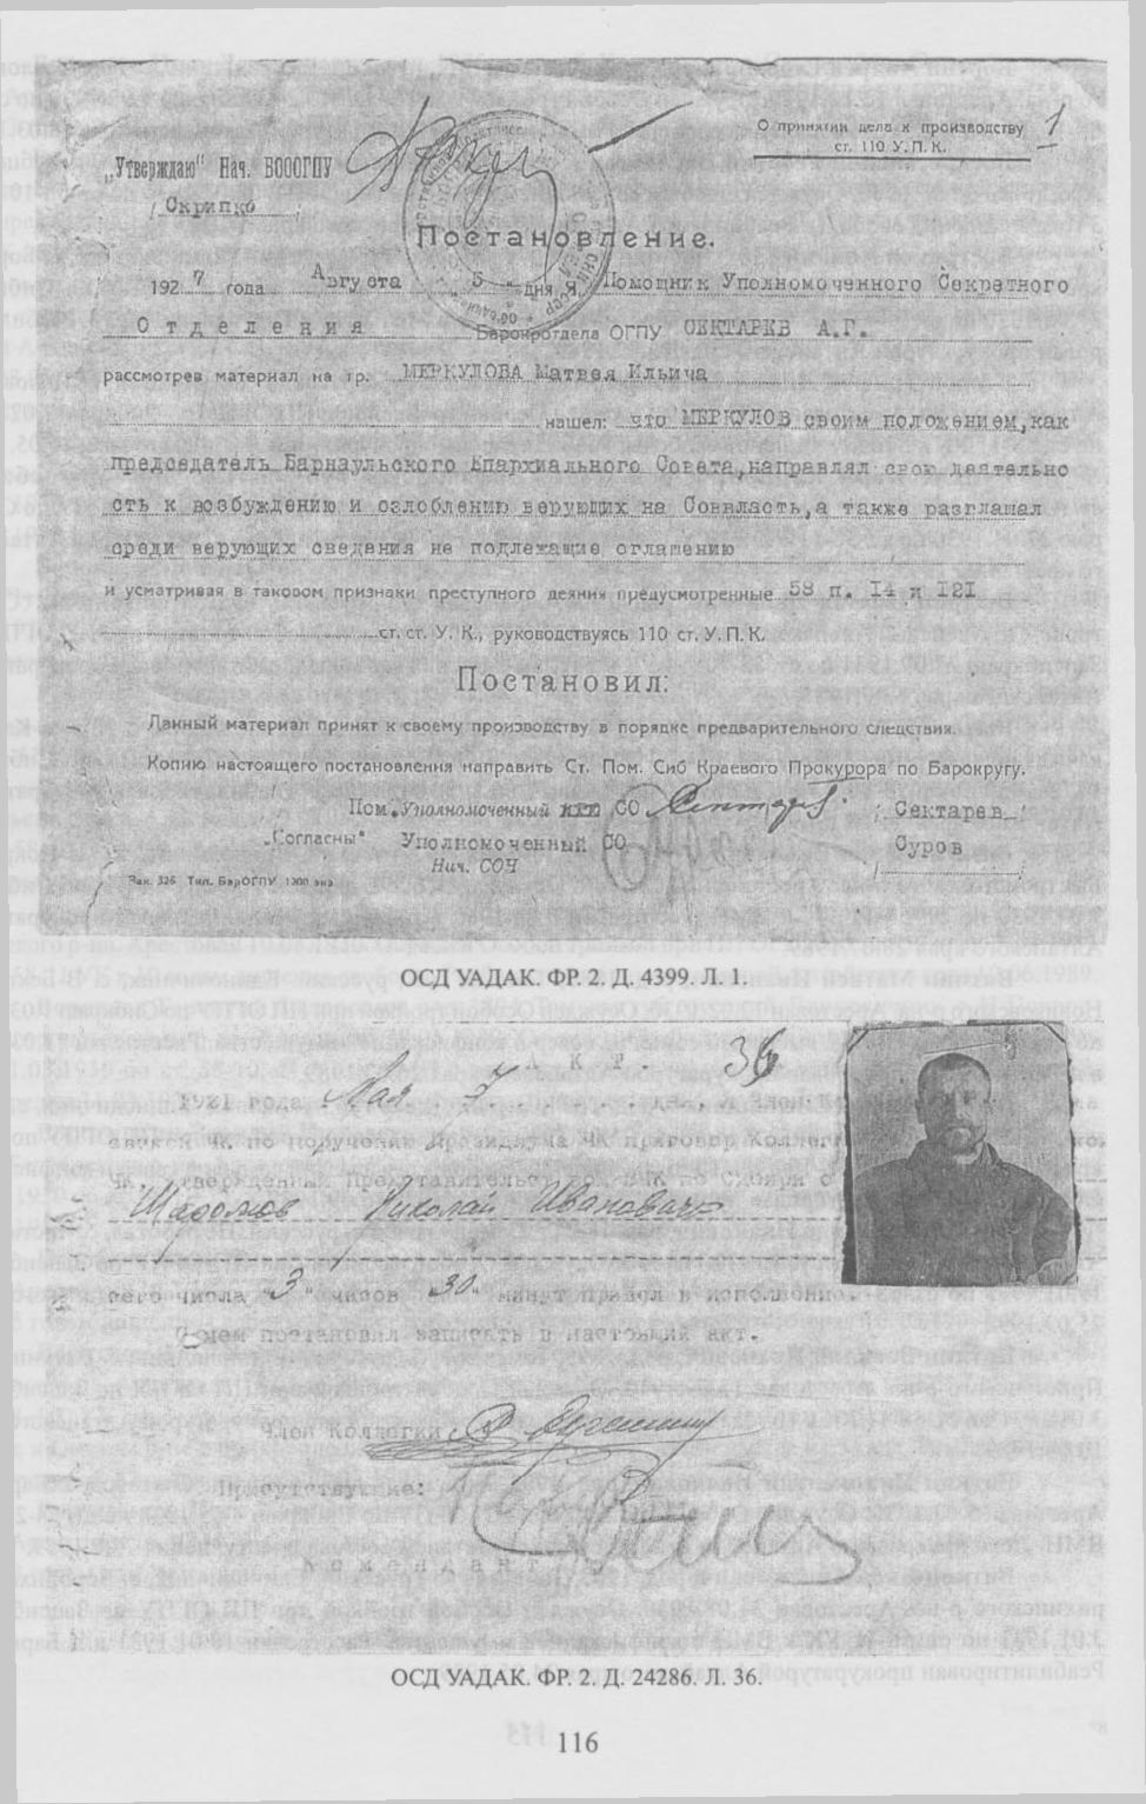 О принятии дела к производству 1
ст. 110 У. П. К.
„Утверждаю" Нач. БОООГПУ
/ Скрипко /
Постановление.
1927 года Августа „ 5 „ дня Я, Помощник Уполномоченного Секретного
Отделения Барокротдела ОГПУ СЕКТАРЕВ А.Г.
рассмотрев материал на гр. МЕРКУЛОВА Матвея Ильича
нашел: что МЕРКУЛОВ своим положением, как
председатель Барнаульского Епархиального Совета, направлял свою деятельно
сть к возбуждению и озлоблению верующих на Соввласть, а также разглашал
среди верующих сведения не подлежащие оглашению
и усматривая в таковом признаки преступного деяния предусмотренные 58 п. I4 и I2I
ст. ст. У. К., руководствуясь 110 ст. У. П. К.
Постановил:
Данный материал принят к своему производству в порядке предварительного следствия.
Копию настоящего постановления направить Ст. Пом. Сиб Краевого Прокурора по Барокругу.
Пом. Уполномоченный СО / Сектарев /
„Согласны" Уполномоченный СО Суров
Нач. СОЧ
Зак. 326 Тип. БарОГПУ 1000 экз
ОСД УАДАК. ФР. 2. Д. 4399. Л. 1.
А К Т . 36
1921 года Мая 7
ЧК по поручению Президиума ЧК приговор Коллегии
ЧК, утвержденный по Сибири о
Николай Иванович
сего числа „3" часов „30" минут привел в исполнение.
О чем постановил записать в настоящий акт.
Член Коллегии
Присутствующие:
Комендант
ОСД УАДАК. ФР. 2. Д. 24286. Л. 36.
116